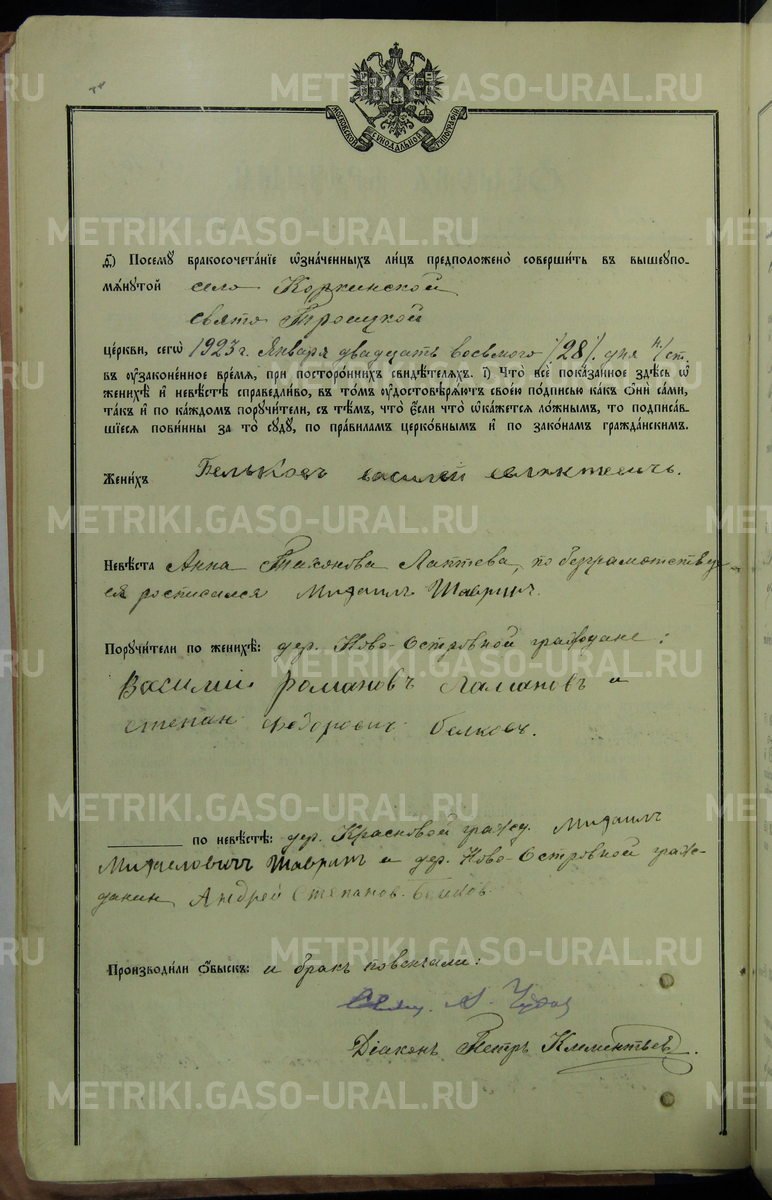 МОСКОВСКОЙ СѴНОДАЛЬНОЙ ТИПОГРАФІИ
METRIKI.GASO-URAL.RU
д҃) Посему̀ бракосочета́ніе ѡ҆зна́ченныхъ ли́цъ предположено̀ соверши́ть въ вышеупо-
мѧ́нутой село Коркинской
свято Троицкой
це́ркви, сегѡ̀ 1923 г. Января двадцать восьмого /28/. дня н/ст.
въ ᲂу҆зако́ненное вре́мѧ, при посторо́ннихъ свидѣ́телѧхъ. і҃) Что̀ всѐ пока́занное здѣ́сь ѡ҆
женихѣ̀ и҆ невѣ́стѣ справедли́во, въ то́мъ ᲂу҆достовѣрѧ́ютъ свое́ю по́дписью ка́къ ѻ҆нѝ са́ми,
та́къ и҆ по ка́ждомъ поручи́тели, съ тѣ́мъ, что̀ є҆́сли что̀ ѡ҆ка́жетсѧ ло́жнымъ, то подписа́в-
шіесѧ пови́нны за то̀ суду̀, по пра́виламъ церко́внымъ и҆ по зако́намъ гражда́нскимъ.
Жени́хъ Бельковъ василей
Невѣ́ста Анна Тихонова Лаптева, по безграмотству
ея росписался Михаилъ Шаврин.
Поручи́тели по женихѣ̀: дер. Ново-Островной граждане:
Василий романовъ и
степан федорович белковъ.
по невѣ́стѣ: дер. Красновой гражд. Михаилъ
Михаеловичъ Шаврин и дер. Ново-Островной граж-
данин Андрей Степанов.
Производи́ли ѻ҆́быскъ: и бракъ повенчали:
Діаконъ Петръ Клементьев.